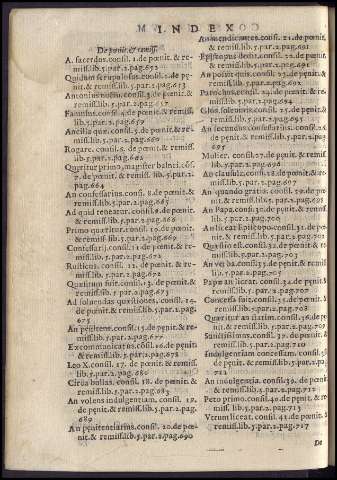 INDEX
De pœnit. & remiss.
A. sacerdos. consil. 1. de pœnit. & re-
miss. lib. 5. par. 2. pag. 652
Quidam scrupulosus. consil. 2. de pœ-
nit. & remiss. lib. 5. par. 2. pag. 653
Antonius consil. 4. de pœnit. &
remiss. lib. 5. par. 2. pag. 657
consil. 4. de pœnit. &
remiss. lib. 5. par. 2. pag. 657
Ancilla quæ. consil. 5. de pœnit. &
remiss. lib. 5. par. 2. pag.
Rogare. consil. 6. de pœnit. & remiss.
lib. 5. par. 2. pag. 662
Quæritur primo, magister balnei. consi.
7. de pœnit. & remiss. lib. 5. par. 2. pag.
664
An confessarius. consil. 8. de pœnit. &
remiss. lib. 5. par. 2. pag. 665
Ad quid teneatur. consil. 9. de pœnit. &
remiss. lib. 5. par. 2. pag. 666
Primo quæritur. consil. 10. de pœnit.
& remiss. lib. 5. par. 2. pag. 669
Confessarij. consil. 11. de pœnit. & re-
miss. lib. 5. par. 2. pag. 672
Rusticus. consil. 12. de pœnit. & re-
miss. lib. 5. par. 2. pag. 672
Quæsitum fuit. consil. 13. de pœnit. &
remiss. lib. 5. par. 2. pag. 673
Ad soluendas quæstiones. consil. 14.
de pœnit. & remiss. lib. 5. par. 2. pag.
675
An pœnitens. consil. 15. de pœnit. & re-
miss. lib. 5. par. 2. pag. 677
Excommunicatus. consil. 16. de pœnit. &
remiss. lib. 5. par. 2. pag. 678
Leo X. consil. 17. de pœnit. & remiss.
lib. 5. par. 2. pag. 680
Circa bullas. consil. 18. de pœnit. &
remiss. lib. 5. par. 2. pag. 683
An volens indulgentiam. consil. 19.
de pœnit. & remiss. lib. 5. par. 2. pag.
689
An pœnitentiarius. consil. 20. de pœ-
nit. & remiss. lib. 5. par. 2. pag. 690
An mendicantes. consil. 21. de pœnit.
& remiss. lib. 5. par. 2. pag. 691
Episcopus consil. 22. de pœnit. &
remiss. lib. 5. par. 2. pag. 692
An possit quis. consil. 23. de pœnit. &
remiss. lib. 5. par. 2. pag. 692
Parochus. consil. 24. de pœnit. & re-
miss. lib. 5. par. 2. pag. 694
consil. 25. de pœnit. & remiss.
lib. 5. par. 2. pag. 695
An secundus consil. 26.
de pœnit. & remiss. lib. 5. par. 2. pag.
695
Mulier. consil. 27. de pœnit. & remiss.
lib. 5. par. 2. pag. 696
An clausula. consil. 28. de pœnit. & re-
miss. lib. 5. par. 2. pag. 697
An quando gratis. consil. 29. de pœnit.
& remiss. lib. 5. par. 2. pag. 698
An Papa. consil. 30. de pœnit. & remiss.
lib. 5. par. 2. pag. 700
An liceat Episcopo. consil. 31. de pœnit.
& remiss. lib. 5. par. 2. pag. 702
Quæsio est. consil. 32. de pœnit. & re-
miss. lib. 5. par. 2. pag. 703
An verba. consil. 33. de pœnit. & remiss.
lib. 5. par. 2. pag. 705
Papa an liceat. consil. 34. de pœnit. &
remiss. lib. 5. par. 2. pag. 707
Conuersa fuit. consil. 35. de pœnit. &
remiss. lib. 5. par. 2. pag. 708
Quæritur an statim. consil. 36. de pœ-
nit. & remiss. lib. 5. par. 2. pag. 709
Sanctissimus. consil. 37. de pœnit. &
remiss. lib. 5. par. 2. pag. 710
Indulgentiam concessam. consil. 38.
de pœnit. & remiss. lib. 5. par. 2. pag.
711
An indulgentia. consil. 39. de pœnit.
& remiss. lib. 5. par. 2. pag. 712
Peto primo. consil. 40. de pœnit. & re-
miss. lib. 5. par. 2. pag. 713
Verum liceat. consil. 41. de pœnit. &
remiss. lib. 5. par. 2. pag. 717
De